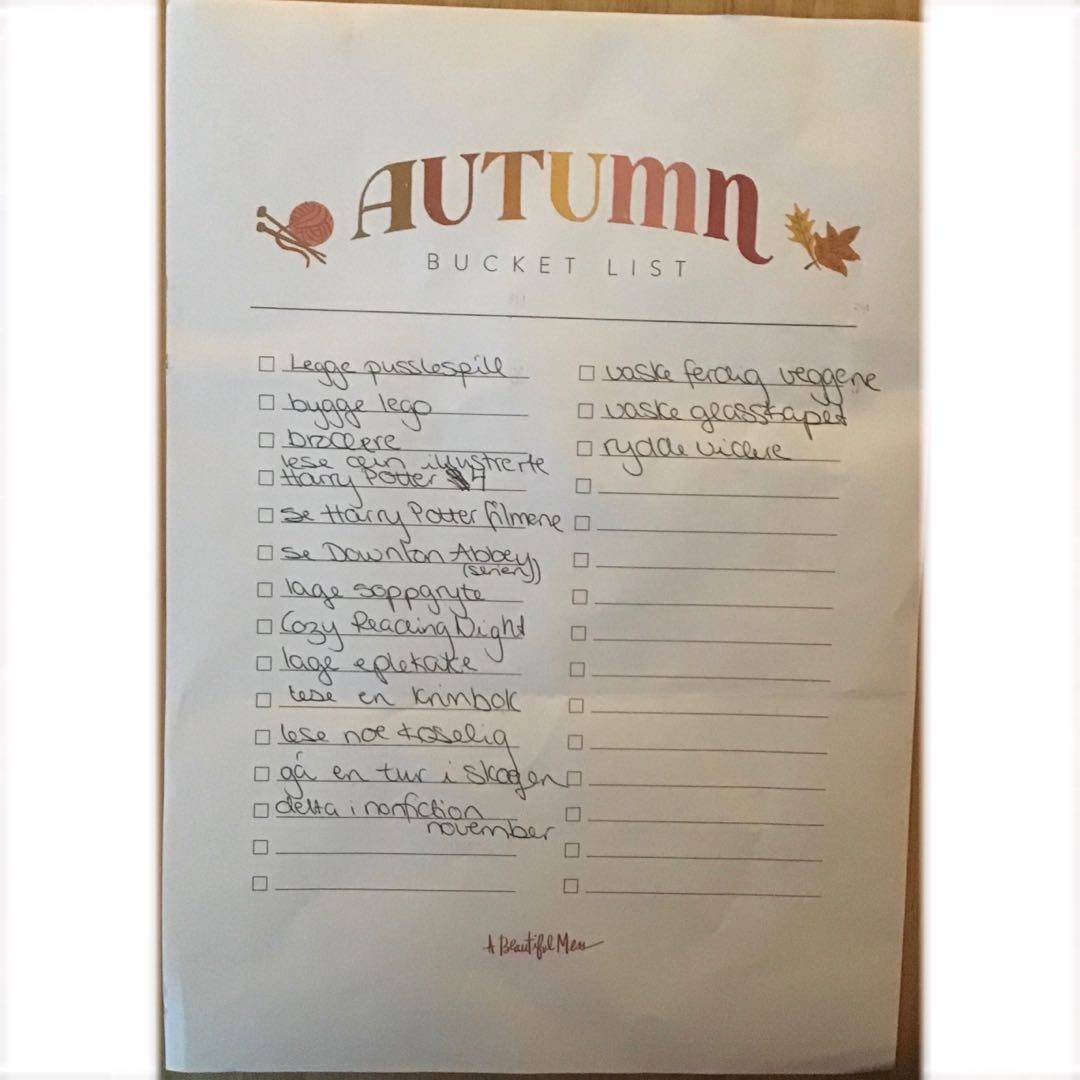 AUTUMN
BUCKET LIST
Legge pusslespill
bygge lego
brodere
lese den illustrerte
Harry Potter 4
se Harry Potter filmene
se Downton Abbey
(serien)
lage soppgryte
Cozy Reading Night
lage eplekake
lese en krimbok
lese noe koselig
gå en tur i skogen
delta i nonfiction
november
vaske ferdig veggene
vaske glasskapet
rydde videre
A Beautiful Mess